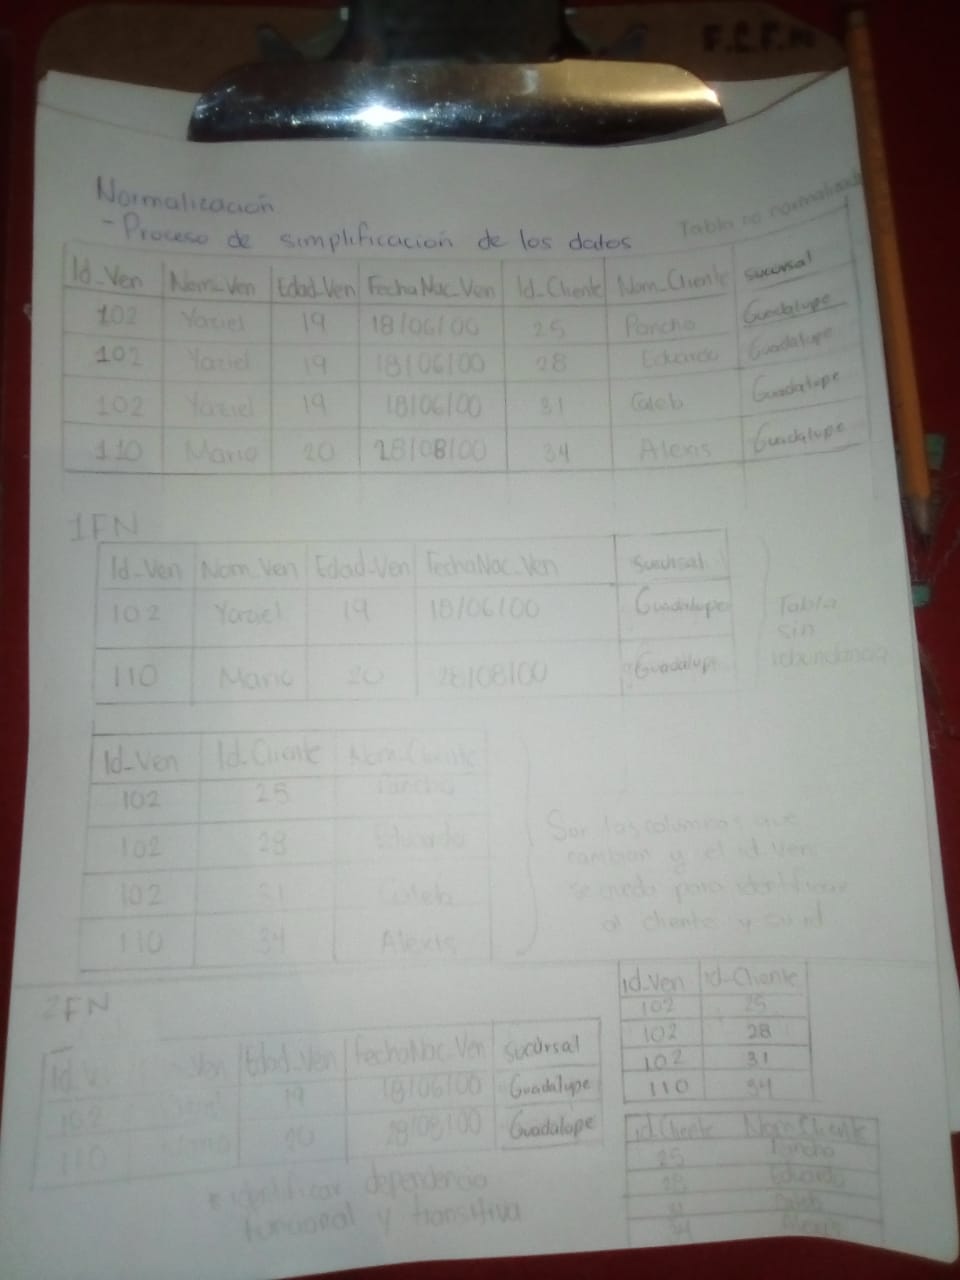 F.C.F.M
Normalización
- Proceso de simplificación de los datos
Tabla no normalizada
Id_Ven Nom_Ven Edad_Ven FechaNac_Ven Id_Cliente Nom_Cliente sucursal
102 Yaziel 19 18/06/00 25 Pancho Guadalupe
102 Yaziel 19 18/06/00 28 Eduardo Guadalupe
102 Yaziel 19 18/06/00 31 Caleb Guadalupe
110 Mario 20 28/08/00 34 Alexis Guadalupe
1FN
Id_Ven Nom_Ven Edad_Ven FechaNac_Ven sucursal
102 Yaziel 19 18/06/00 Guadalupe
110 Mario 20 28/08/00 Guadalupe
Tabla
sin
Id_Ven Id_Cliente Nom_Cliente
102 25 Pancho
102 28 Eduardo
102 31 Caleb
110 34 Alexis
Son las columnas que
cambian y el id_Ven
se para identificar
al cliente y su id
2FN
Id_Ven Edad_Ven FechaNac_Ven sucursal
102 19 18/06/00 Guadalupe
110 Mario 20 28/08/00 Guadalupe
* identificar dependencia
funcional y transitiva
id_Ven id_Cliente
102 25
102 28
102 31
110 34
id_Cliente Nom_Cliente
25 Pancho
28 Eduardo
31 Caleb
34 Alexis